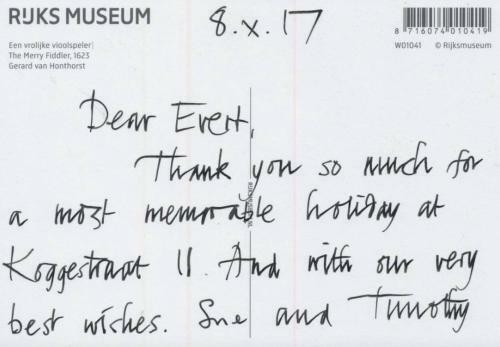 RIJKS MUSEUM
8.X.17
Een vrolijke vioolspeler
The Merry Fiddler, 1623
Gerard van Honthorst
8 716074 010419
W01041 © Rijksmuseum
Dear Evert,
Thank you so much for
a most memorable holiday at
Koggestraat 11. And with our very
best wishes. Sue and Timothy